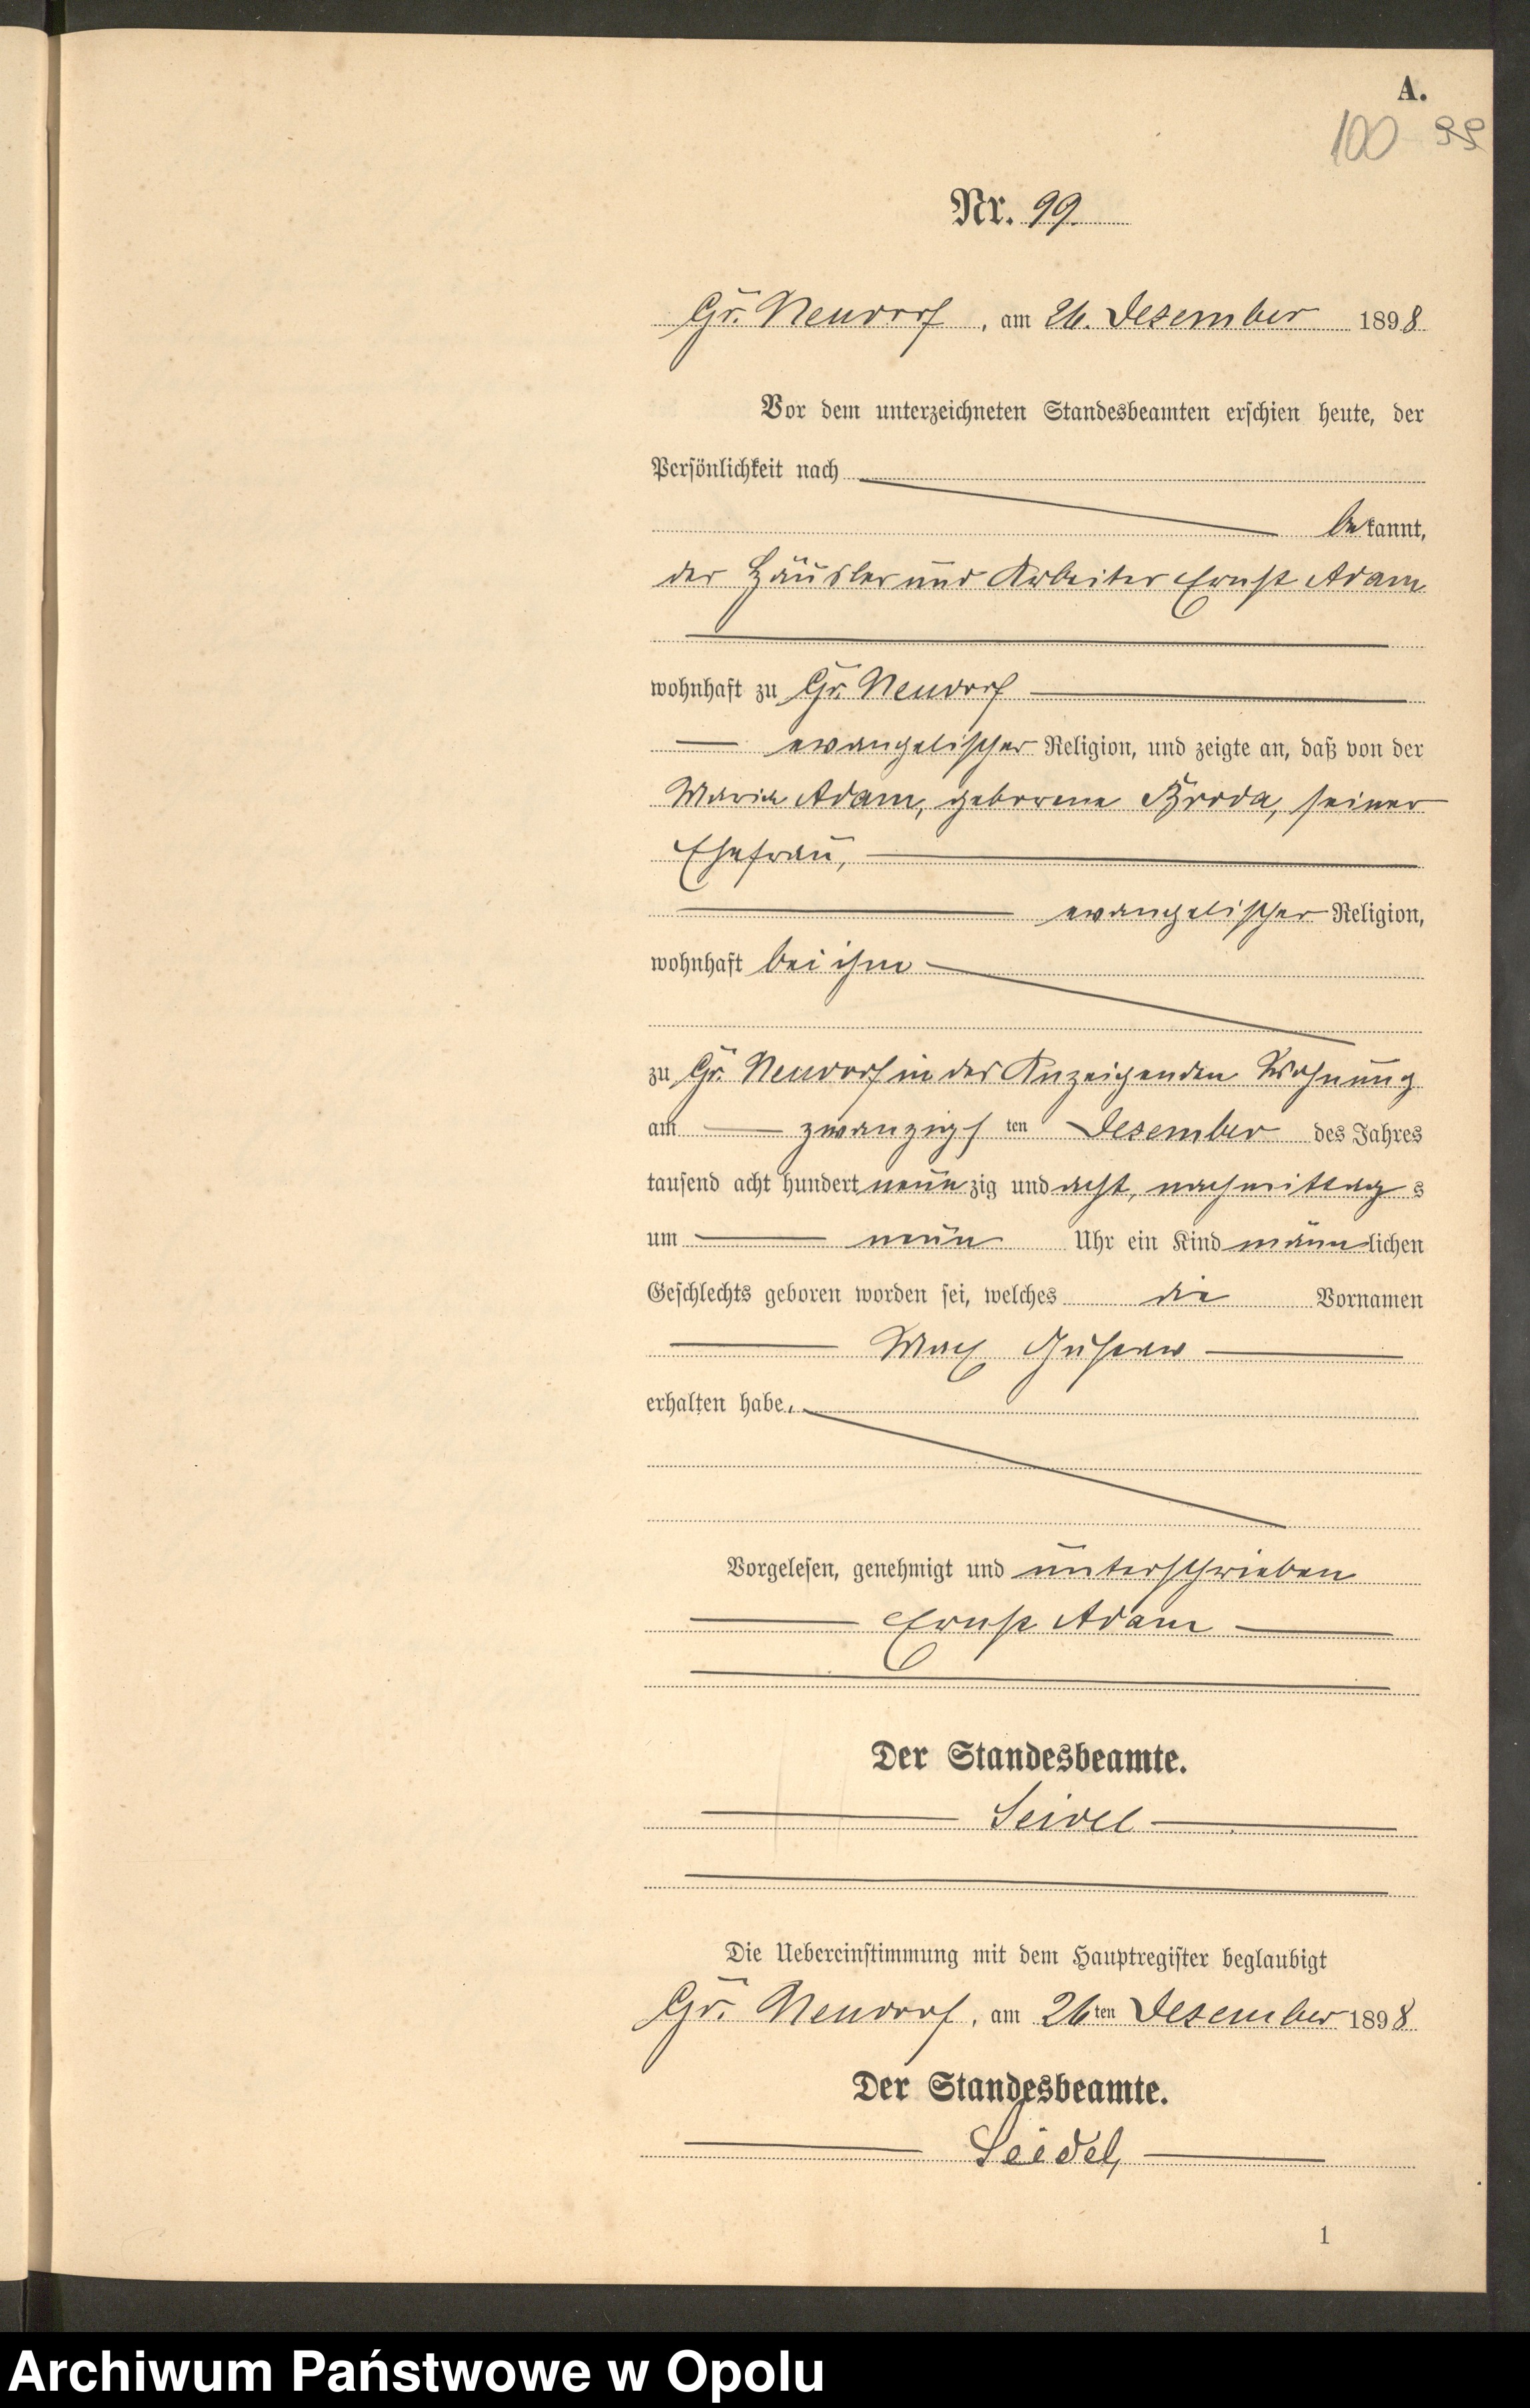 A.
100 99
Nr. 99.
Gr. Neudorf, am 26. Dezember 1898
Vor dem unterzeichneten Standesbeamten erschien heute, der
Persönlichkeit nach
bekannt,
der Häusler und Arbeiter Ernst Adam
wohnhaft zu Gr. Neudorf
evangelischer Religion, und zeigte an, daß von der
Maria Adam, geborene Broda, seiner
Ehefrau,
evangelischer Religion,
wohnhaft bei ihm
zu Gr. Neudorf in des Anzeigenden Wohnung
am zwanzigsten Dezember des Jahres
tausend acht hundert neunzig und acht, nachmittags
um neun Uhr ein Kind männlichen
Geschlechts geboren worden sei, welches die Vornamen
Max Gustaw
erhalten habe.
Vorgelesen, genehmigt und unterschrieben
Ernst Adam
Der Standesbeamte.
Seidel
Die Uebereinstimmung mit dem Hauptregister beglaubigt
Gr. Neudorf, am 26ten Dezember 1898
Der Standesbeamte.
Seidel,
1
Archiwum Państwowe w Opolu